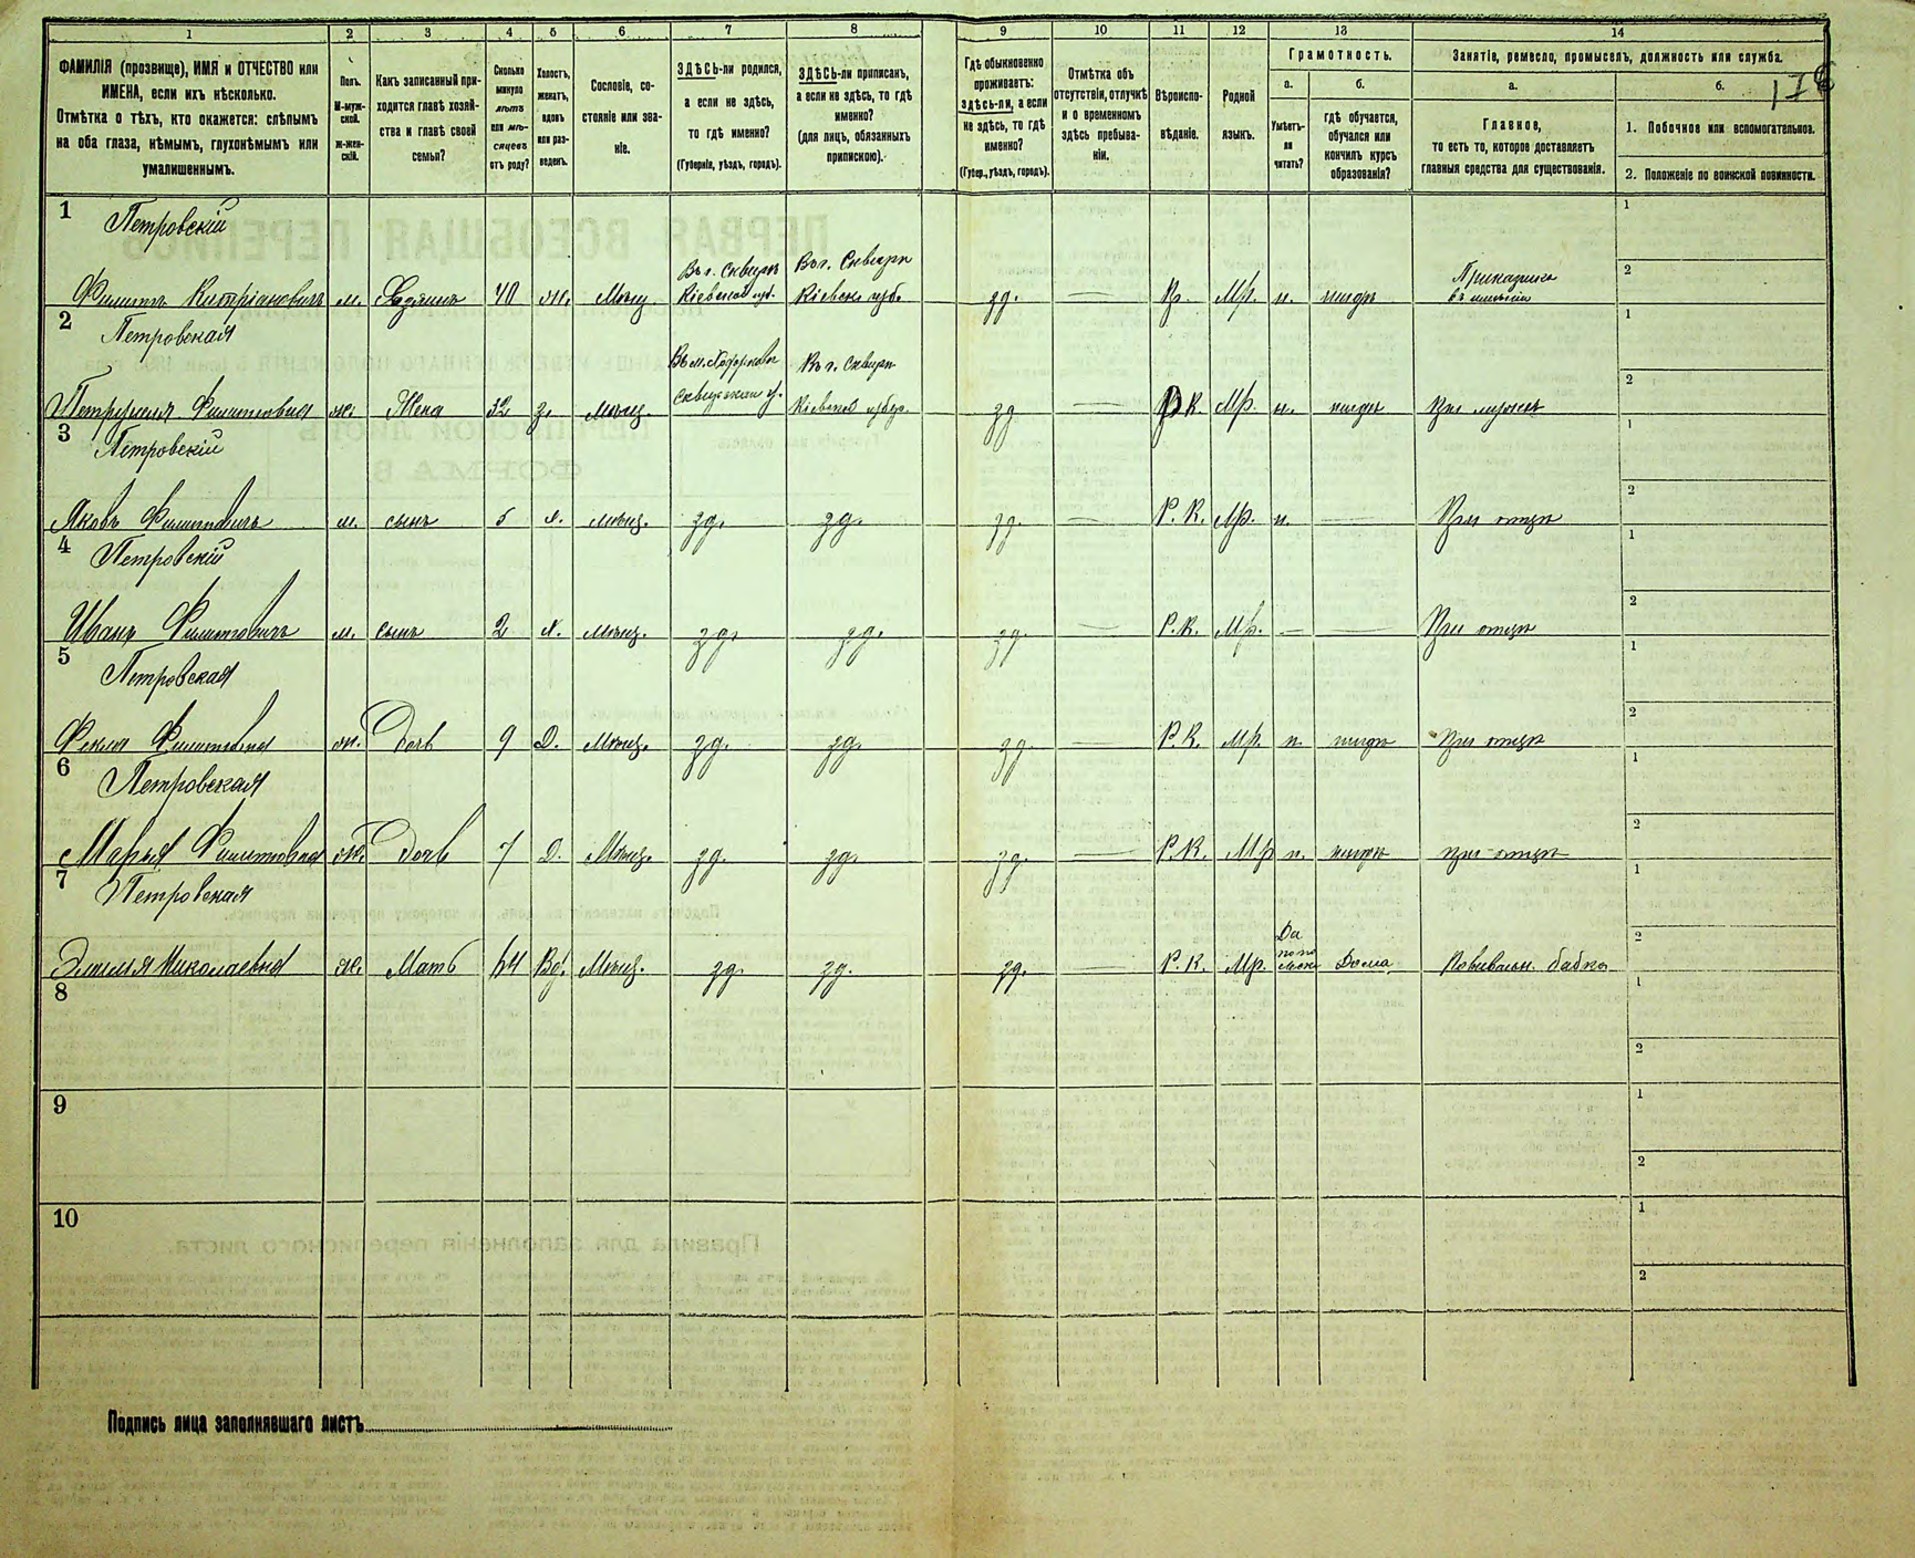 1 2 3 4 5 6 7 8 9 10 11 12 13 14
ФАМИЛІЯ (прозвище), ИМЯ и ОТЧЕСТВО или
ИМЕНА, если ихъ нѣсколько.
Отмѣтка о тѣхъ, кто окажется: слѣпымъ
на оба глаза, нѣмымъ, глухонѣмымъ или
умалишеннымъ.
Полъ.
М-муж-
ской.
Ж-жен-
скій.
Какъ записанный при-
ходится главѣ хозяй-
ства и главѣ своей
семьи?
Сколько
минуло
лѣтъ
или мѣ-
сяцевъ
отъ роду?
Холостъ,
женатъ,
вдовъ
или раз-
веденъ.
Сословіе, со-
стояніе или зва-
ніе.
ЗДѢСЬ-ли родился,
а если не здѣсь,
то гдѣ именно?
(Губернія, уѣздъ, городъ).
ЗДѢСЬ-ли приписанъ,
а если не здѣсь, то гдѣ
именно?
(для лицъ, обязанныхъ
припискою).
Гдѣ обыкновенно
проживаетъ:
здѣсь-ли, а если
не здѣсь, то гдѣ
именно?
(Губер., уѣздъ, городъ).
Отмѣтка объ
отсутствіи, отлучкѣ
и о временномъ
здѣсь пребыва-
ніи.
Вѣроиспо-
вѣданіе.
Родной
языкъ.
Грамотность.
а.
Умѣетъ-
ли
читать?
б.
гдѣ обучается,
обучался или
кончилъ курсъ
образованія?
Занятіе, ремесло, промыселъ, должность или служба.
а.
Главное,
то есть то, которое доставляетъ
главныя средства для существованія.
б.
1. Побочное или вспомогательное.
2. Положеніе по воинской повинности.
1 Петровскій 1
Въ г. Сквирѣ Въ г. Сквирѣ Прикащикъ 2
Филиппъ Кипріановичъ м. 40 ж. Мѣщ. Кіевской губ. Кіевск. губ. зд. — Мр. н. нигдѣ въ имѣніи
2 Петровская 1
Въ г. Сквирѣ 2
Филипповна ж. Жена 32 з. Мѣщ. Сквирскаго у. Кіевской губер. зд — Р.К. Мр. н. нигдѣ При мужѣ
3 Петровскій 1
2
Яковъ Филипповичъ м. сынъ 5 х. мѣщ. зд. зд. зд. — Р. К. Мр. н. — При отцѣ
4 Петровскій 1
2
Иванъ Филипповичъ м. сынъ 2 х. мѣщ. зд. зд. зд. — Р.К. Мр. — — При отцѣ
5 Петровская 1
2
Фекла Филипповна ж. Дочь 9 Д. Мѣщ. зд. зд. зд. — Р.К. Мр. н. нигдѣ При отцѣ
6 Петровская 1
2
Марья Филипповна ж. Дочь 7 Д. Мѣщ. зд. зд. зд. — Р.К. Мр н. нигдѣ при отцѣ
7 Петровская 1
Да 2
Эмилія Николаевна ж. Мать 64 Вд. Мѣщ. зд. зд. зд. — Р.К. Мр. по польск. Дома Повивальн. бабка
8 1
2
9 1
2
10 1
2
Подпись лица заполнявшаго листъ